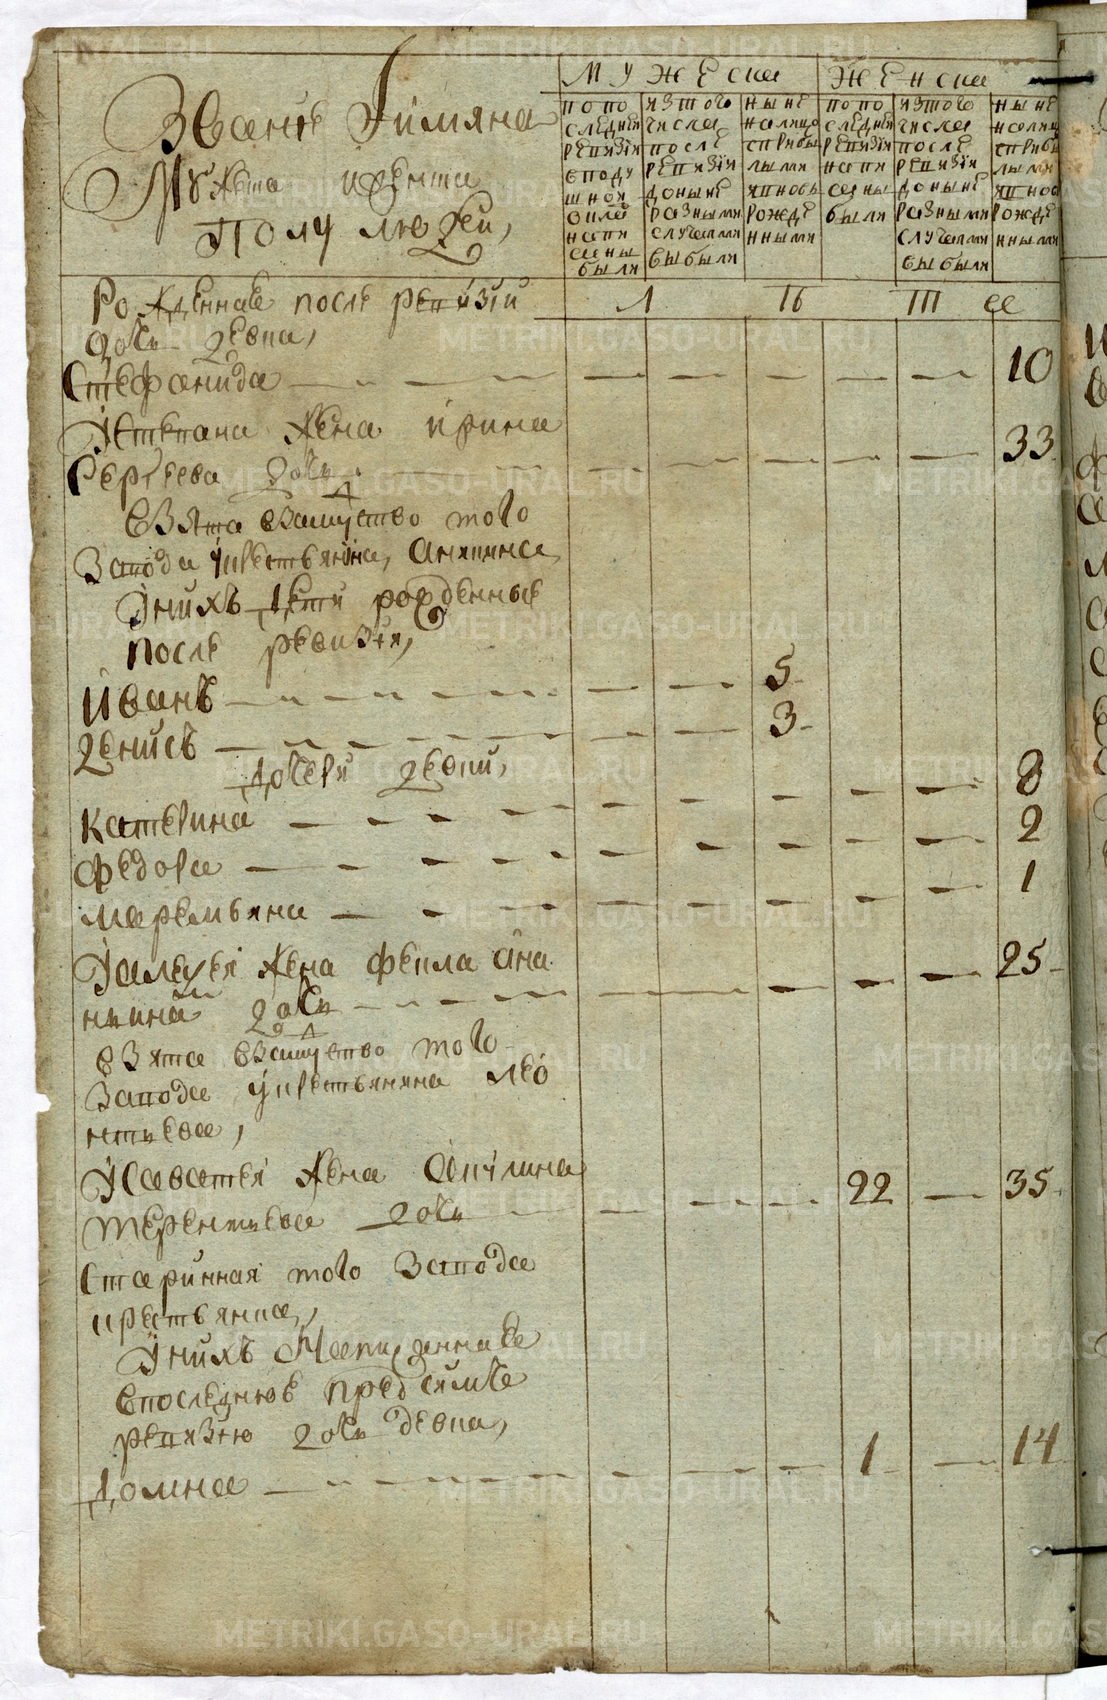 METRIKI.GASO-URAL.RU
Званiе Їимяна
Мужеска иженска
Полу людей,
мужеска
женска
попо следней ревизiи вподушной окладъ написаны были
изтого числа после ревизiи доныне разными случаями выбыли
ныне налицо сприбылыми ивновь рожденными
попо следней ревизiи написаны были
изтого числа после ревизiи доныне разными случаями выбыли
ныне налицо сприбылыми ивновь рожденными
Рожденнае после ревизiи
дочь девка,
Стефанида 10
Устепана жена ирина
Сергеева дочь 33
взята взамужство того
Завода укрестьянина, Аникина
Унихъ дети рожденные
после ревизiи,
иванъ 5
денисъ 3
дочери девки,
катерина 8
федора 2
маремьяна 1
жена фекла ана
ньина дочь 25
взята взамужство того
Завода укрестьянина лео
нтьева,
Усаватея жена акулина
терентьева дочь 22 35
Старинная того Завода
крестьянка,
Унихъ Написаннае
впоследнюе пред симъ
ревизiю дочь девка,
домна 1 14